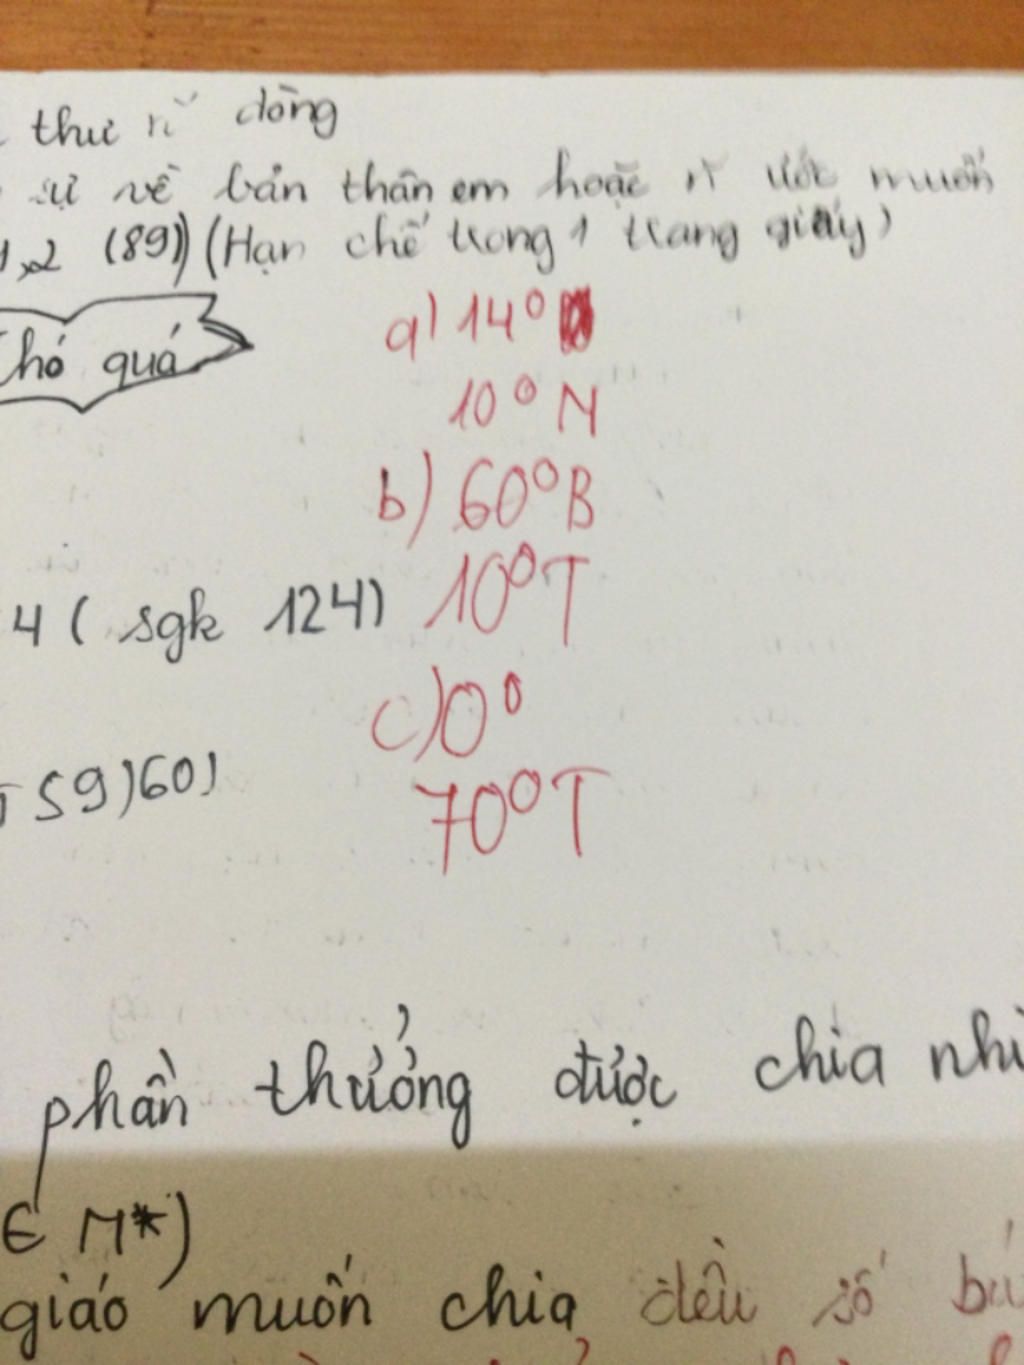 thư rỉ dòng
sự về bản thân em hoặc rỉ ước muốn
1,2 (89) (Hạn chế trong 1 trang giấy)
a) 14°
Khó quá
10° N
b) 60° B
4 ( sgk 124) 10° T
c) 0°
59)60)
70° T
phần thưởng được chia
∈ N*)
giáo muốn chia đều số